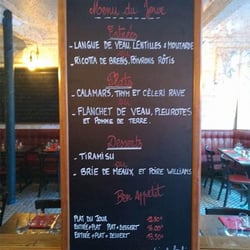 Menu du Jour
Entrées
- LANGUE DE VEAU, LENTILLES & MOUTARDE
- RICOTTA DE BREBIS, POIVRONS RÔTIS
Plats
- CALAMARS, THYM ET CÉLERI RAVE
ou
- FLANCHET DE VEAU, PLEUROTES
ET POMME DE TERRE.
Desserts
- TIRAMISU
ou
- BRIE DE MEAUX, ET POIRE WILLIAMS
Bon Appétit
PLAT DU JOUR
ENTRÉE+PLAT PLAT+DESSERT
ENTRÉE+PLAT+DESSERT